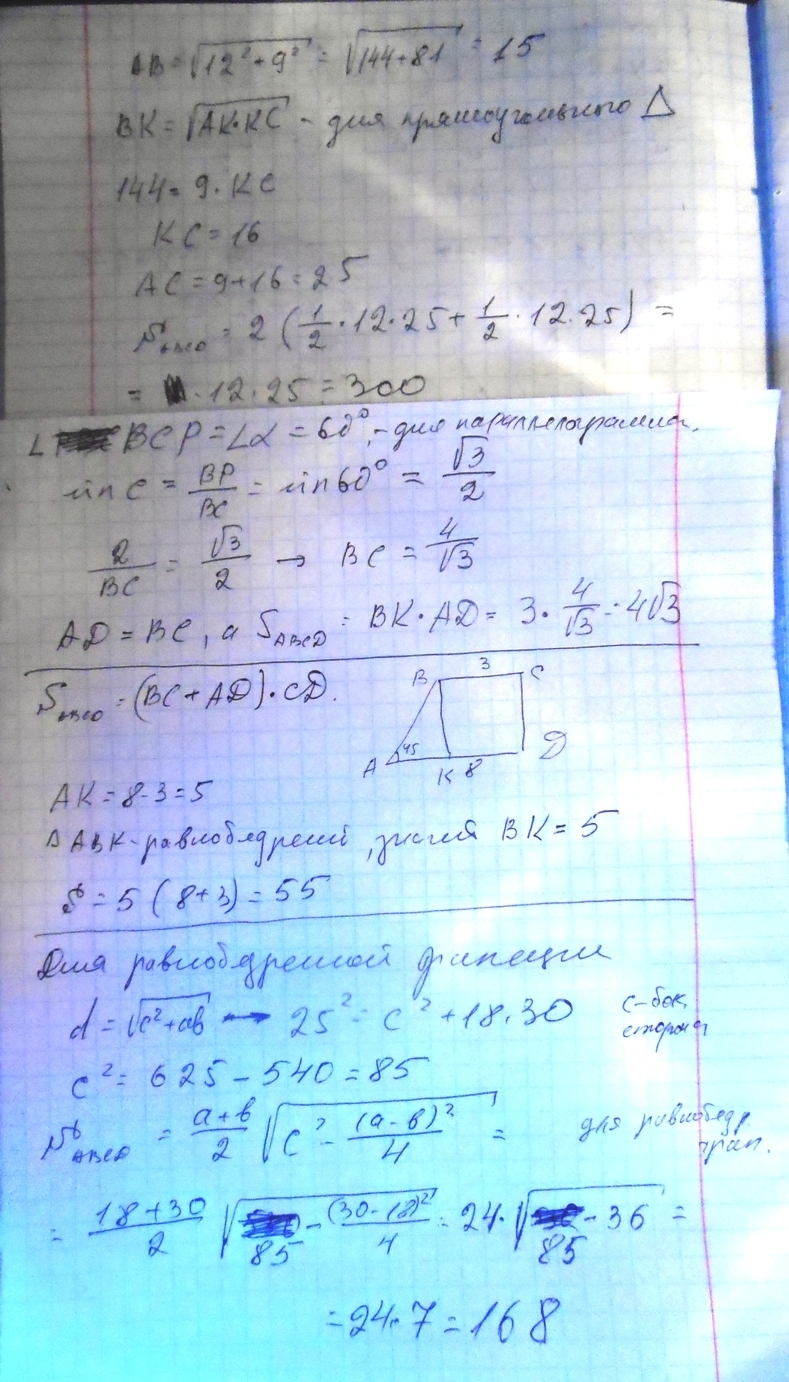 AB = √(12² + 9²) = √(144 + 81) = 15
BK = √(AK·KC) - для прямоугольного △
144 = 9 · KC
KC = 16
AC = 9 + 16 = 25
S = 2 (1/2 · 12 · 25 + 1/2 · 12 · 25) =
= · 12 · 25 = 300
∠ BCP = ∠α = 60°, - для параллелограмма.
sin C = BP/BC = sin 60° = √3/2
2/BC = √3/2 → BC = 4/√3
AD = BC, а S_ABCD = BK · AD = 3 · 4/√3 = 4√3
S = (BC + AD) · CD.
B 3 C
A 45 K 8 D
AK = 8 - 3 = 5
△ ABK - равнобедрений, значит BK = 5
S = 5 (8 + 3) = 55
Для равнобедренной трапеции
d = √(c² + ab) → 25² = c² + 18 · 30 c - бок. сторона
c² = 625 - 540 = 85
S_ABCD = (a + b)/2 √(c² - (a - b)²/4) = для равнобедр. трап.
= (18 + 30)/2 √(85 - (30 - 18)²/4) = 24 · √(85 - 36) =
= 24 · 7 = 168